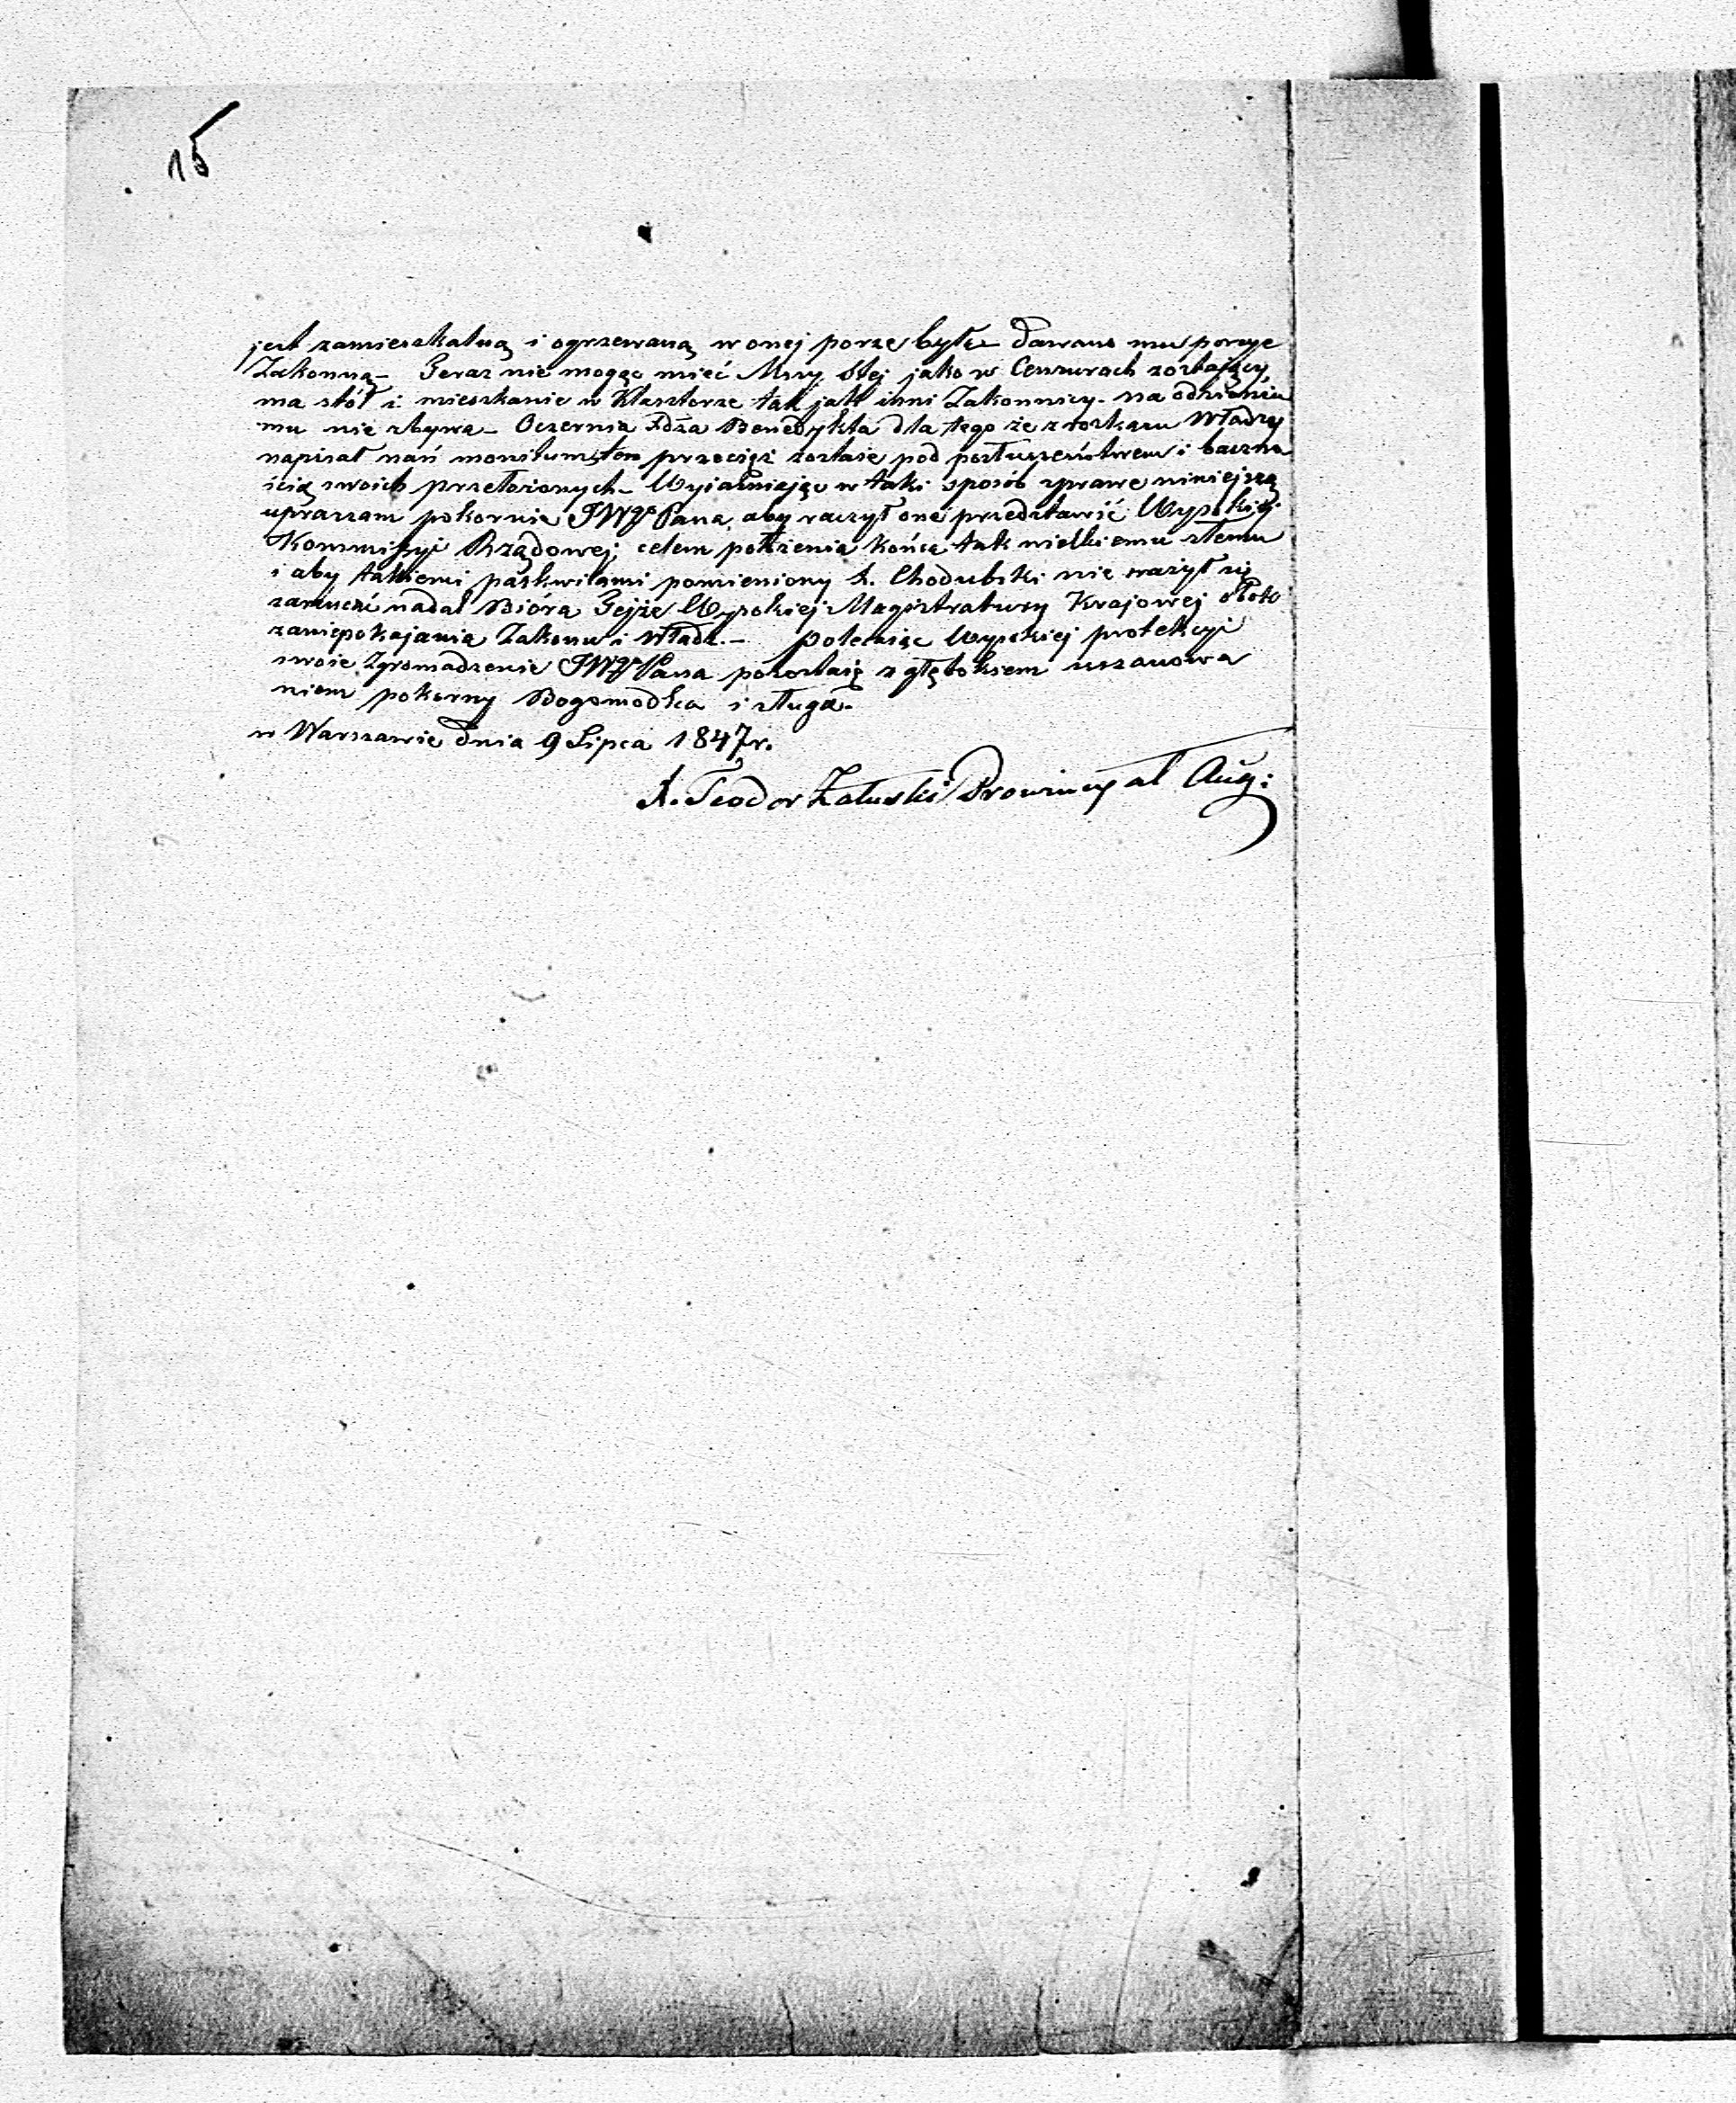 15
jest zamieszkalną i ogrzewaną w onej porze byłe dawano mu porcye
Zakonną – Teraz nie mogąc mieć Mszy Stej jako w Cenzurach zostający
ma stół i mieszkanie w Klasztorze tak jak inni Zakonnicy – na odzieniu
mu nie zbywa – Oczernia Xdza Benedykta dla tego że z rozkazu Władzy
napisał nań monitum, ten przecież zostaie pod posłuszeństwem i baczno
ścią swoich przełożonych – Wyiaśniając w taki sposób sprawę niniejszą
upraszam pokornie JWgo Pana, aby raczył one przedstawić Wysokiej
Kommissyi Rządowej, celem położenia końca tak wielkiemu złemu
i aby takiemi paszkwilami pomieniony X. Chodubski nie ważył się
zarzucać nadal Bióra Tejże Wysokiej Magistratury Krajowej
zaniepokajania Zakonu i Władz. – polecaiąc Wysokiej protekcyi
swoie Zgromadzenie JWgo Pana pozostaię z głębokiem uszanowa
niem pokorny Bogomodlca i sługa –
w Warszawie dnia 9 Lipca 1847 r.
X. Teodor Załuski Prowincyał Aug: